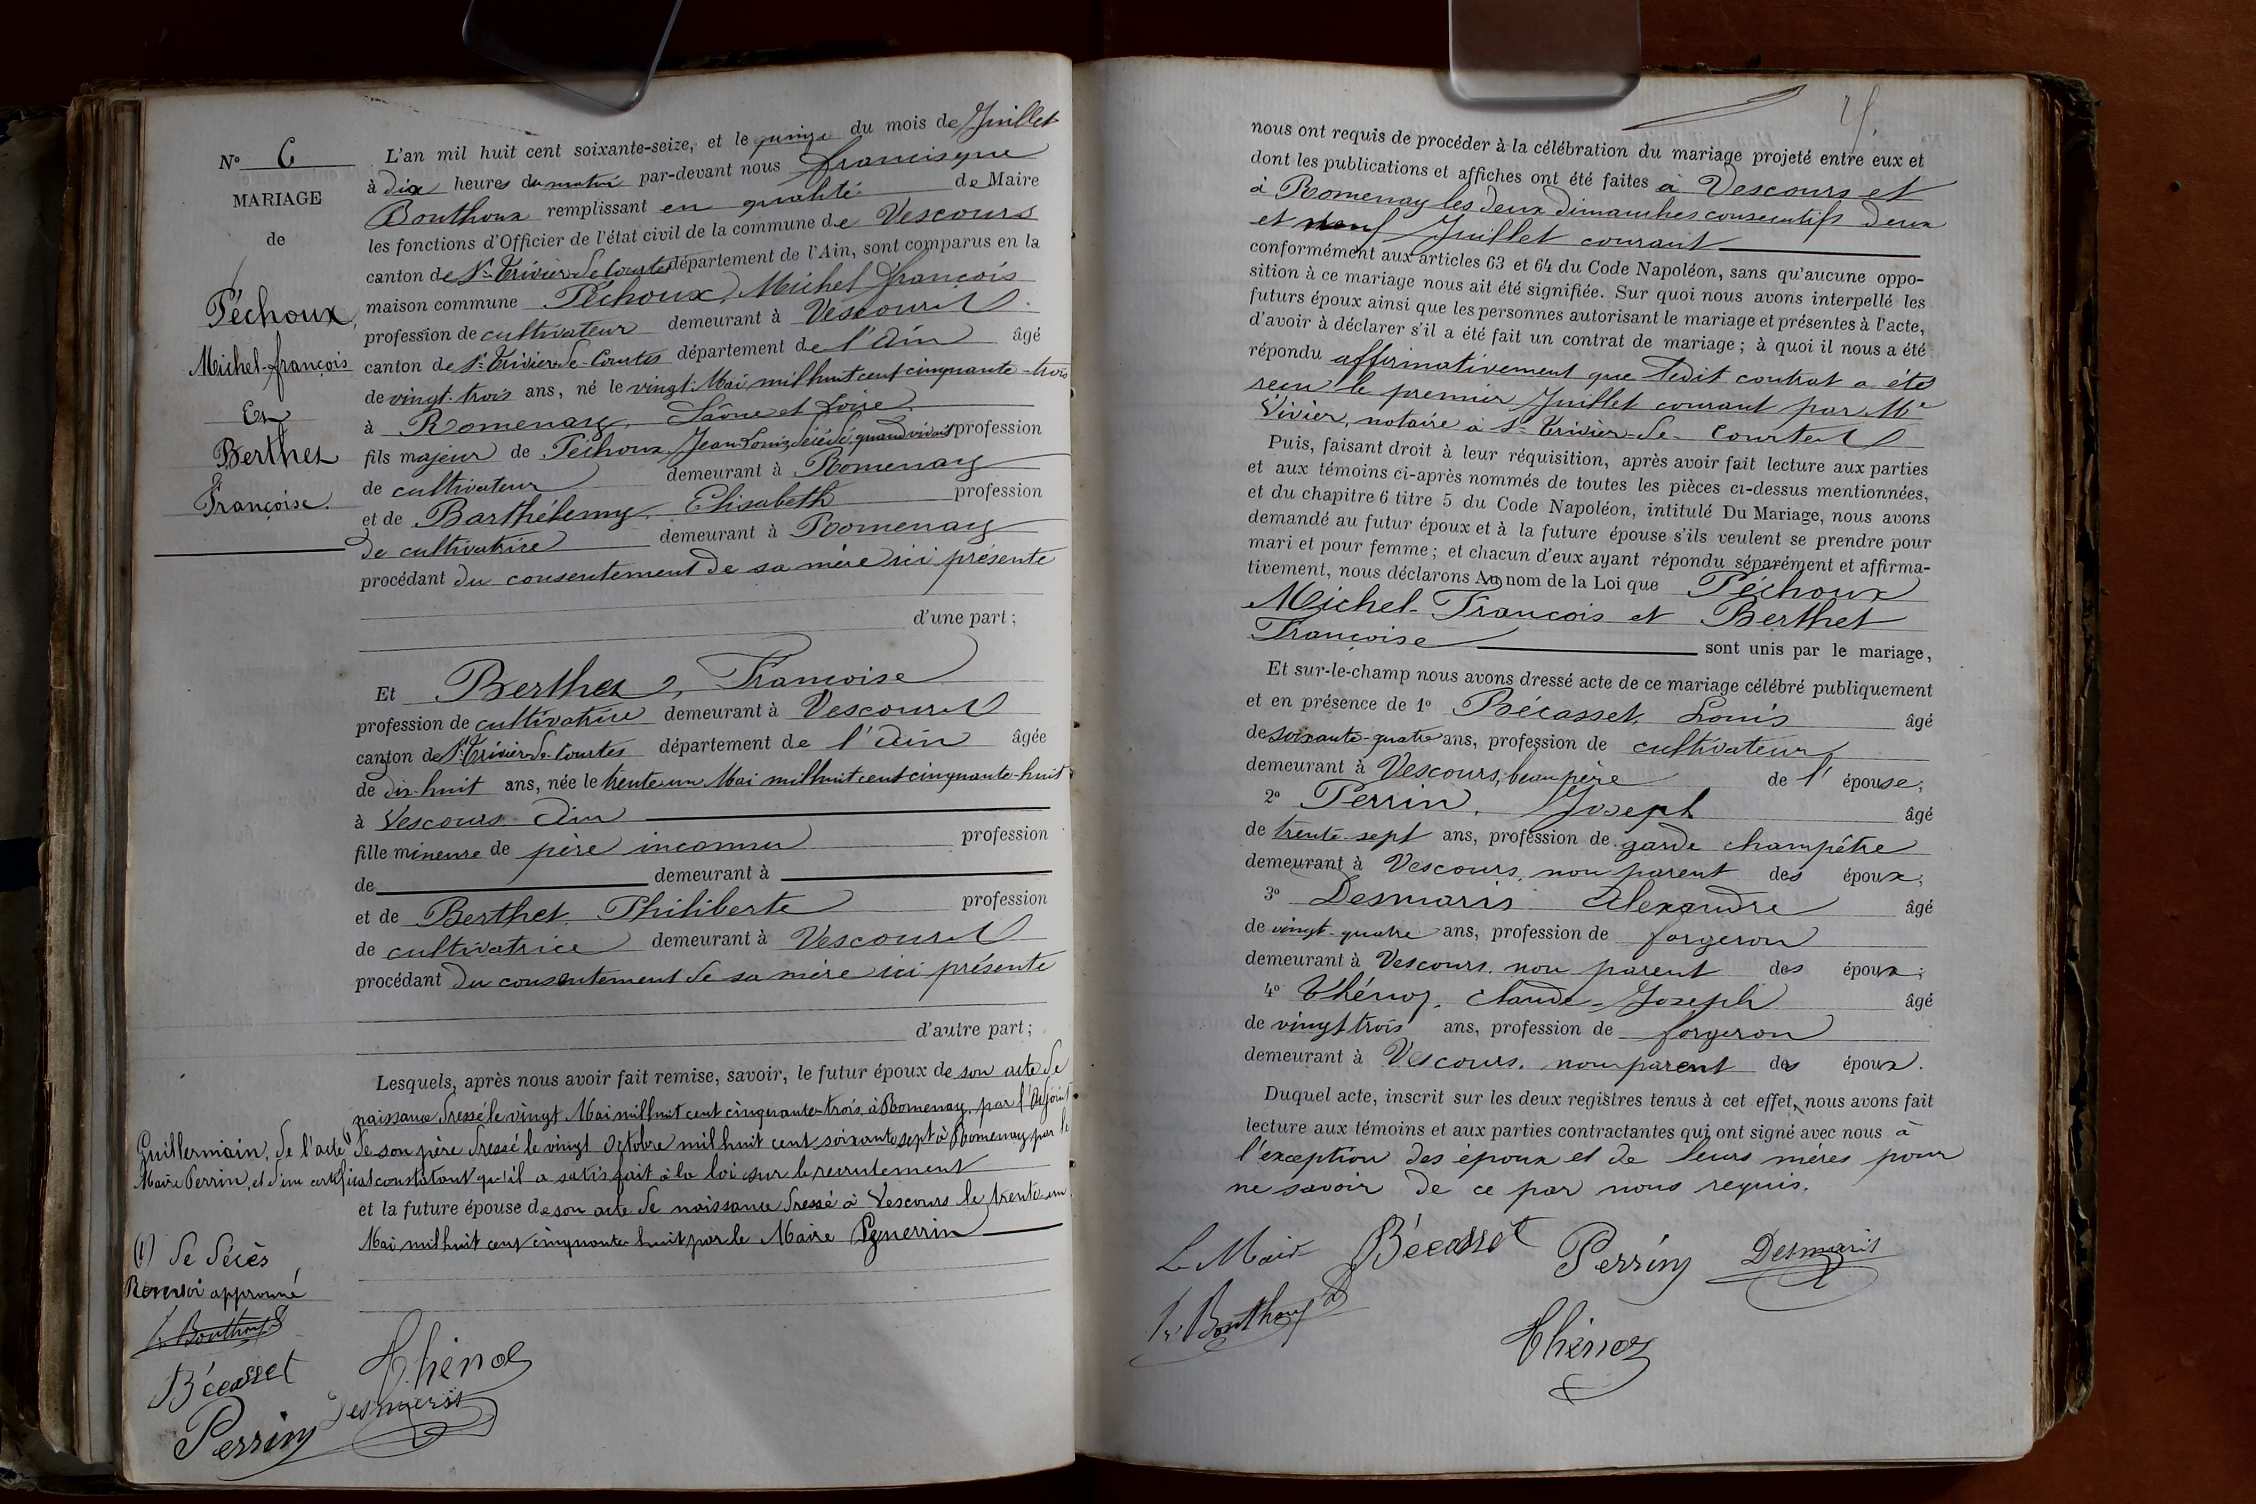 N° 6
MARIAGE
de
Péchoux,
Michel-françois
Et
Berthet
Françoise.
L'an mil huit cent soixante-seize, et le quinze du mois de Juillet
à dix heures du matin par-devant nous francisque
Bouthoux remplissant en qualité de Maire
les fonctions d'Officier de l'état civil de la commune de Vescours
canton de St Trivier-de-Courtes département de l'Ain, sont comparus en la
maison commune Péchoux, Michel françois
profession de cultivateur demeurant à Vescours
canton de St Trivier-de-Courtes département de l'Ain âgé
de vingt-trois ans, né le vingt Mai mil huit cent cinquante-trois
à Romenay, Saône et Loire
fils majeur de Péchoux Jean-Louis, décédé, quand vivait profession
de cultivateur demeurant à Romenay
et de Barthélemy, Elisabeth profession
de cultivatrice demeurant à Romenay
procédant du consentement de sa mère ici présente
d'une part ;
Et Berthet, Françoise
profession de cultivatrice demeurant à Vescours
canton de St Trivier-de-Courtes département de l'Ain âgée
de dix-huit ans, née le trente un Mai mil huit cent cinquante-huit
à Vescours Ain
fille mineure de père inconnu profession
de demeurant à
et de Berthet, Philiberte profession
de cultivatrice demeurant à Vescours
procédant du consentement de sa mère ici présente
d'autre part ;
Lesquels, après nous avoir fait remise, savoir, le futur époux de son acte de
naissance dressé le vingt Mai mil huit cent cinquante-trois à Romenay, par l'Adjoint
Guillermain, de l'acte (1) de son père dressé le vingt Octobre mil huit cent soixante sept à Romenay par le
Maire Perrin, et d'un certificat constatant qu'il a satisfait à la loi sur le recrutement
et la future épouse de son acte de naissance dressé à Vescours le trente-un
Mai mil huit cent cinquante huit par le Maire
(1) de décès
Renvoi approuvé
Fr Bouthoux
Bécasset
Thénoz
Desmaris
Perrin
nous ont requis de procéder à la célébration du mariage projeté entre eux et
dont les publications et affiches ont été faites à Vescours et
à Romenay les deux dimanches consécutifs deux
et neuf Juillet courant
conformément aux articles 63 et 64 du Code Napoléon, sans qu'aucune oppo-
sition à ce mariage nous ait été signifiée. Sur quoi nous avons interpellé les
futurs époux ainsi que les personnes autorisant le mariage et présentes à l'acte,
d'avoir à déclarer s'il a été fait un contrat de mariage ; à quoi il nous a été
répondu affirmativement que ledit contrat a été
reçu le premier Juillet courant par Me
Vivier, notaire à St Trivier-de-Courtes
Puis, faisant droit à leur réquisition, après avoir fait lecture aux parties
et aux témoins ci-après nommés de toutes les pièces ci-dessus mentionnées,
et du chapitre 6 titre 5 du Code Napoléon, intitulé Du Mariage, nous avons
demandé au futur époux et à la future épouse s'ils veulent se prendre pour
mari et pour femme ; et chacun d'eux ayant répondu séparément et affirma-
tivement, nous déclarons Au nom de la Loi que Péchoux
Michel-François et Berthet
Françoise sont unis par le mariage,
Et sur-le-champ nous avons dressé acte de ce mariage célébré publiquement
et en présence de 1° Bécasset, Louis âgé
de soixante-quatre ans, profession de cultivateur
demeurant à Vescours, beau père de l' épouse,
2° Perrin, Joseph âgé
de trente-sept ans, profession de garde champêtre
demeurant à Vescours, non parent des époux,
3° Desmaris Alexandre âgé
de vingt-quatre ans, profession de forgeron
demeurant à Vescours, non parent des époux ;
4° Thénoz, Claude-Joseph âgé
de vingt trois ans, profession de forgeron
demeurant à Vescours, non parent des époux.
Duquel acte, inscrit sur les deux registres tenus à cet effet, nous avons fait
lecture aux témoins et aux parties contractantes qui ont signé avec nous à
l'exception des époux et de leurs mères pour
ne savoir de ce par nous requis.
Le Maire Bécasset Perrin Desmaris
Fr Bouthoux
Thénoz